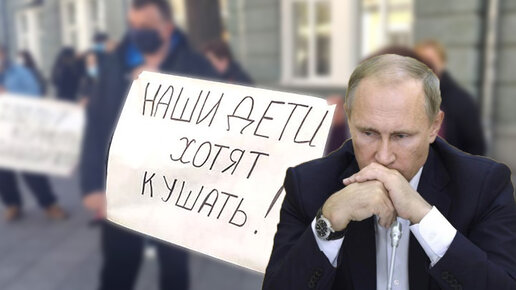 НАШИ ДЕТИ
ХОТЯТ
КУШАТЬ!